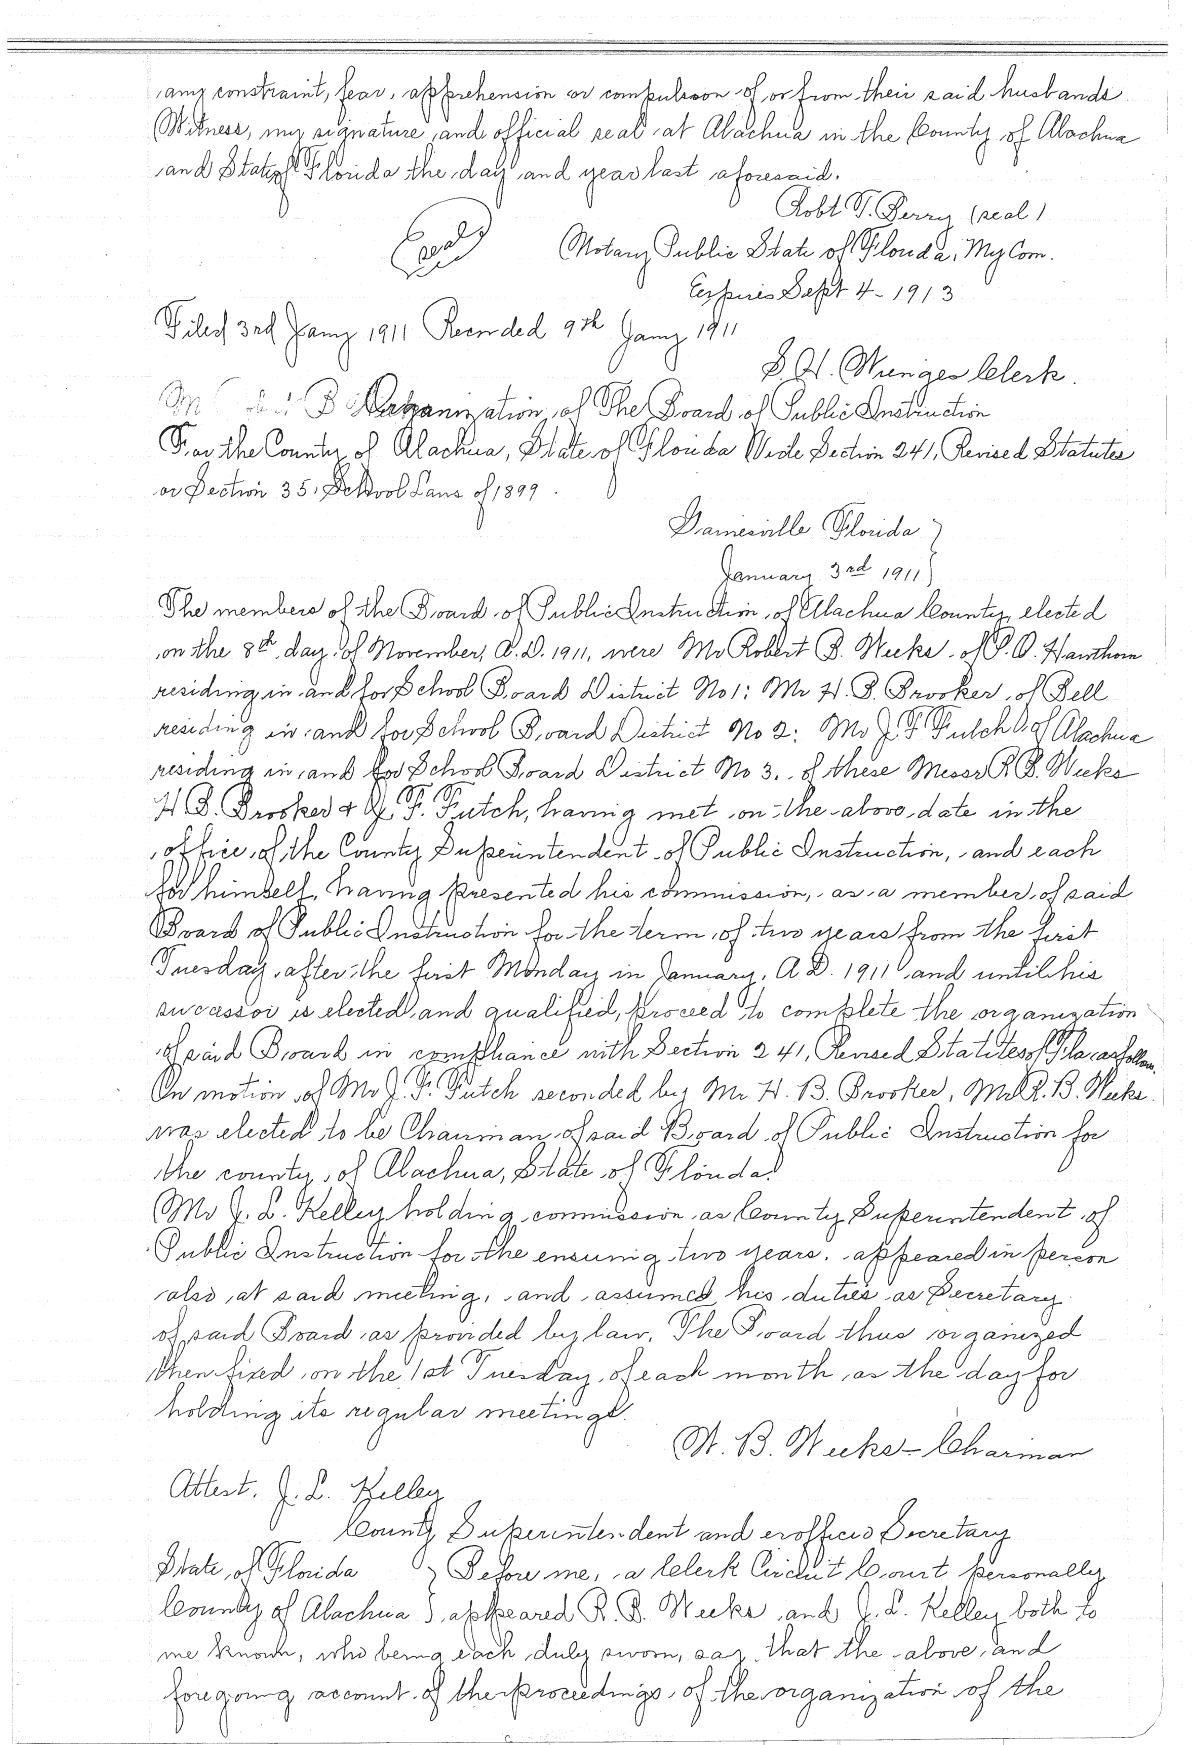 any constraint, fear, apprehension or compulsion of or from their said husbands
Witness, my signature and official seal at Alachua in the County of Alachua
and State of Florida the day and year last aforesaid.
Robt T. Berry (seal)
(Seal)
Notary Public State of Florida, My Com.
Expires Sept 4-1913
Filed 3rd Jany 1911 Recorded 9th Jany 1911
S. H. Wienges Clerk.
Organization of The Board of Public Instruction
For the County of Alachua, State of Florida Vide Section 241, Revised Statutes
or Section 35, School Laws of 1899.
Gainesville Florida }
January 3rd 1911 }
The members of the Board of Public Instruction of Alachua County, elected
on the 8th day of November, A.D. 1911, were Mr Robert B. Weeks of P.O. Hawthorn
residing in and for School Board District No 1: Mr H. B. Brooker of Bell
residing in and for School Board District No 2: Mr J F Futch of Alachua
residing in and for School Board District No 3. of these Messr R B. Weeks
H B. Brooker & J. F. Futch, having met on the above date in the
office of the County Superintendent of Public Instruction, and each
for himself, having presented his commission, as a member of said
Board of Public Instruction for the term of two years from the first
Tuesday after the first Monday in January, A.D. 1911 and until his
successor is elected and qualified, proceed to complete the organization
of said Board in compliance with Section 241, Revised Statites of Fla, as follows.
On motion of Mr J. F. Futch seconded by Mr H. B. Brooker, Mr R. B. Weeks
was elected to be Chairman of said Board of Public Instruction for
the county of Alachua, State of Florida.
Mr J. L. Kelley holding commission as County Superintendent of
Public Instruction for the ensuing two years. appeared in person
also at said meeting, and assumed his duties as Secretary
of said Board as provided by law. The Board thus organized
then fixed on the 1st Tuesday of each month as the day for
holding its regular meetings.
W. B. Weeks - Chairman
Attest. J. L. Kelley
County Superintendent and exofficio Secretary
State of Florida } Before me, a Clerk Circuit Court personally
County of Alachua } appeared R. B. Weeks and J. L. Kelley both to
me known, who being each duly sworn, say that the above and
foregoing account of the proceedings of the organization of the